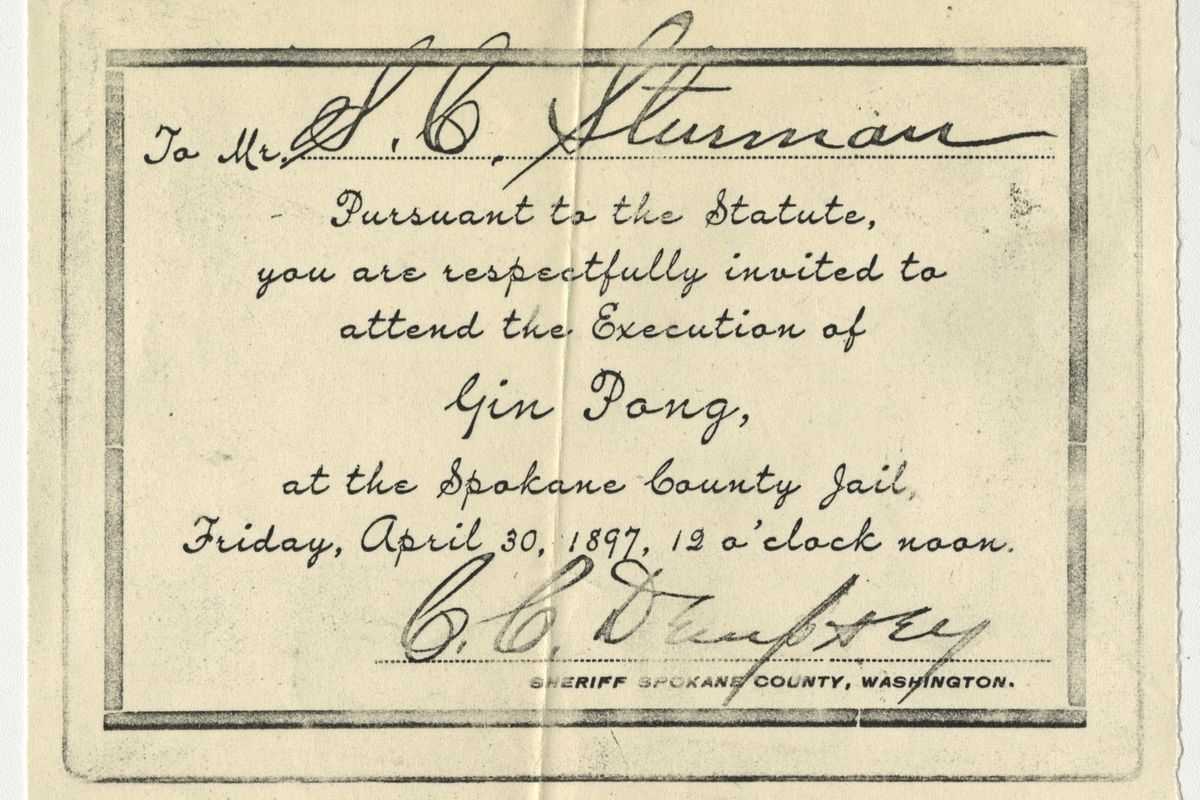 To Mr. S. C. Sturman
Pursuant to the Statute,
you are respectfully invited to
attend the Execution of
Gin Pong,
at the Spokane County Jail,
Friday, April 30, 1897, 12 o'clock noon.
C. C. Dempsey
SHERIFF SPOKANE COUNTY, WASHINGTON.